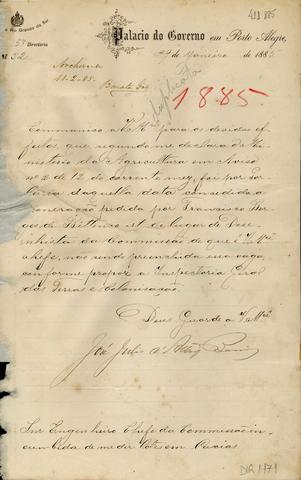 411 885
Rio Grande do Sul
5ª Directoria
Nº 52
Palacio do Governo em Porto Alegre,
29 de Janeiro de 1885
Archive
11-2-85.
Duplicata
1885.
Communico a V. Mcê para os devidos ef-
feitos que, segundo me declara o Mi-
nisterio da Agricultura em Aviso
nº 2 de 12 do corrente mez, foi por Por-
taria daquella data concedida a
exoneração pedida por Francisco Bor-
ges de do lugar de Dese-
nhista da Commissão de que é V. Mcê
chefe, não sendo preenchida sua vaga,
conforme propoz a Inspectoria Geral
das Terras e Colonisação.
Deus Guarde a V. Mcê
José Julio de
Snr Engenheiro Chefe da Commissão in-
cumbida de medir lotes em Caxias
DIR 1471